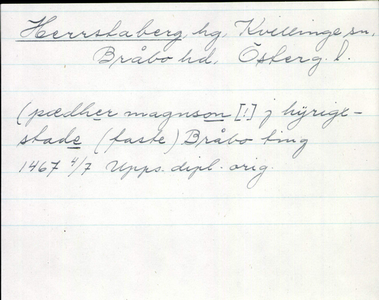 Herrstaberg, hg, Kvillinge sn,
Bråbo hd. Österg. l.
(pædher magnson [!] j hÿrige-
stade (faste) Bråbo ting
1467 4/7 Upps. dipl. orig.